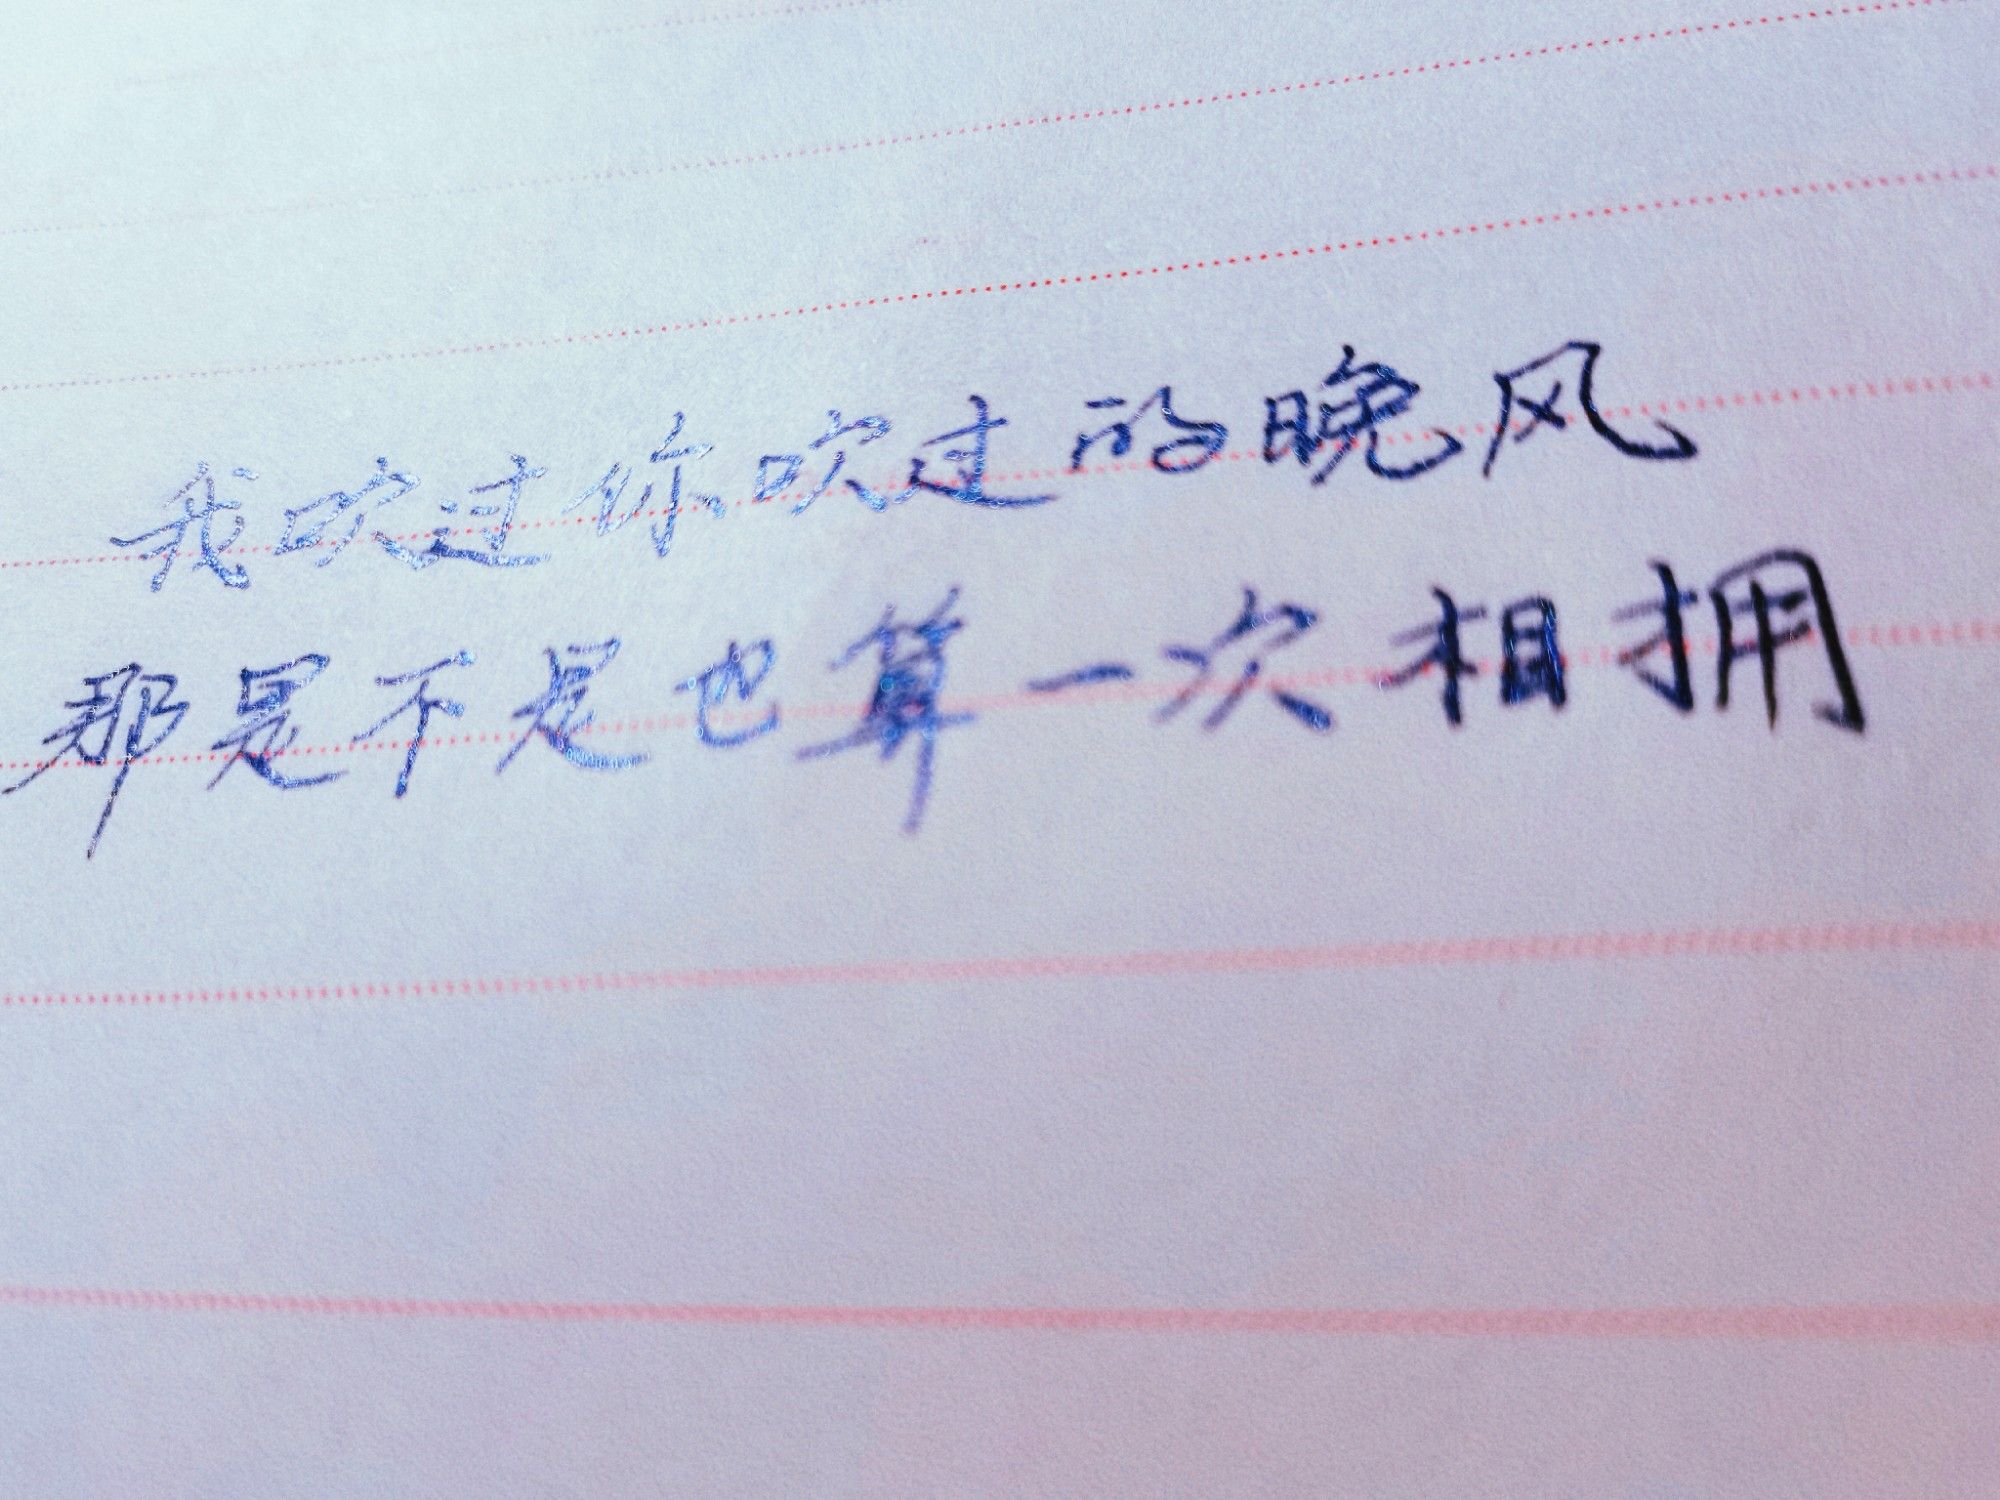 我吹过你吹过的晚风
那是不是也算一次相拥